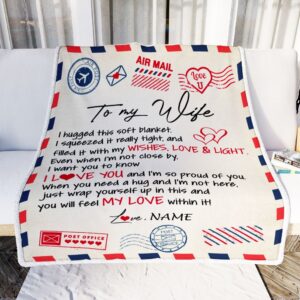 AIR MAIL
LOVE U
To my Wife
I hugged this soft blanket.
I squeezed it really tight, and
Filled it with my WISHES, LOVE & LIGHT.
Even when i'm not close by,
I want you to know
I LOVE YOU and i'm so proud of you.
When you need a hug and I'm not here,
just wrap yourself up in this and
you will feel MY LOVE within it!
Love, NAME
POST OFFICE